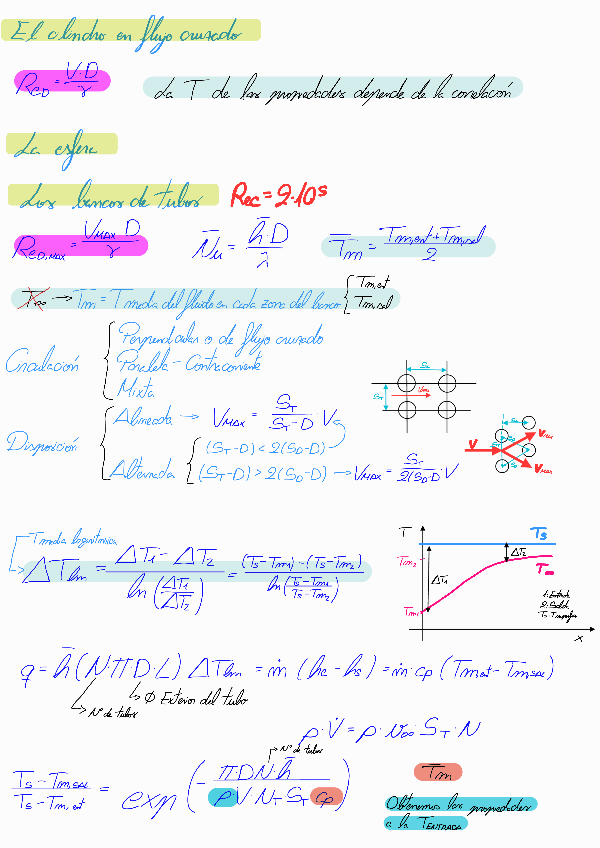 El cilindro en flujo cruzado
Re_D = V·D/γ
La T de las propiedades depende de la correlación
La esfera
Los bancos de tubos Rec = 2·10⁵
Re_D,MAX = V_MAX D/γ
N̄u = h̄·D/λ
T̄m = (Tm,ent + Tm,sal)/2
T∞ → Tm = T media del fluido en cada zona del banco { Tm,ent
Tm,sal
Circulación { Perpendicular o de flujo cruzado
Paralela - Contracorriente
Mixta
Disposición { Alineada → V_MAX = S_T/(S_T - D) · V
Alternada { (S_T - D) < 2(S_D - D)
(S_T - D) > 2(S_D - D) → V_MAX = S_T/2(S_D - D) · V
S_L
S_T
V_MAX
V
V_MAX
V_MAX
T media logarítmica
ΔT_lm = (ΔT1 - ΔT2)/ln(ΔT1/ΔT2) = ((Ts - Tm1) - (Ts - Tm2))/ln((Ts - Tm1)/(Ts - Tm2))
T
Ts
Tm2
ΔT2
Tm
ΔT1
Tm1
1: Entrada
2: Salida
Ts: T superficie
x
q = h̄ (N π D·L) ΔT_lm = ṁ (he - hs) = ṁ·cp (Tm,ent - Tm,sal)
Nº de tubos
Ø Exterior del tubo
ρ·V̇ = ρ·v∞·S_T·N
Nº de tubos
(Ts - Tm,sal)/(Ts - Tm,ent) = exp(- π·D N·h̄/(ρ V N_T S_T cp))
T̄m
Obtenemos las propiedades
a la T ENTRADA